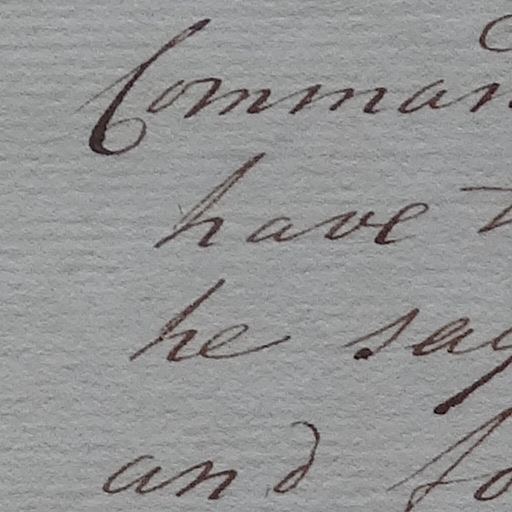 Comman
have
he say
and fo